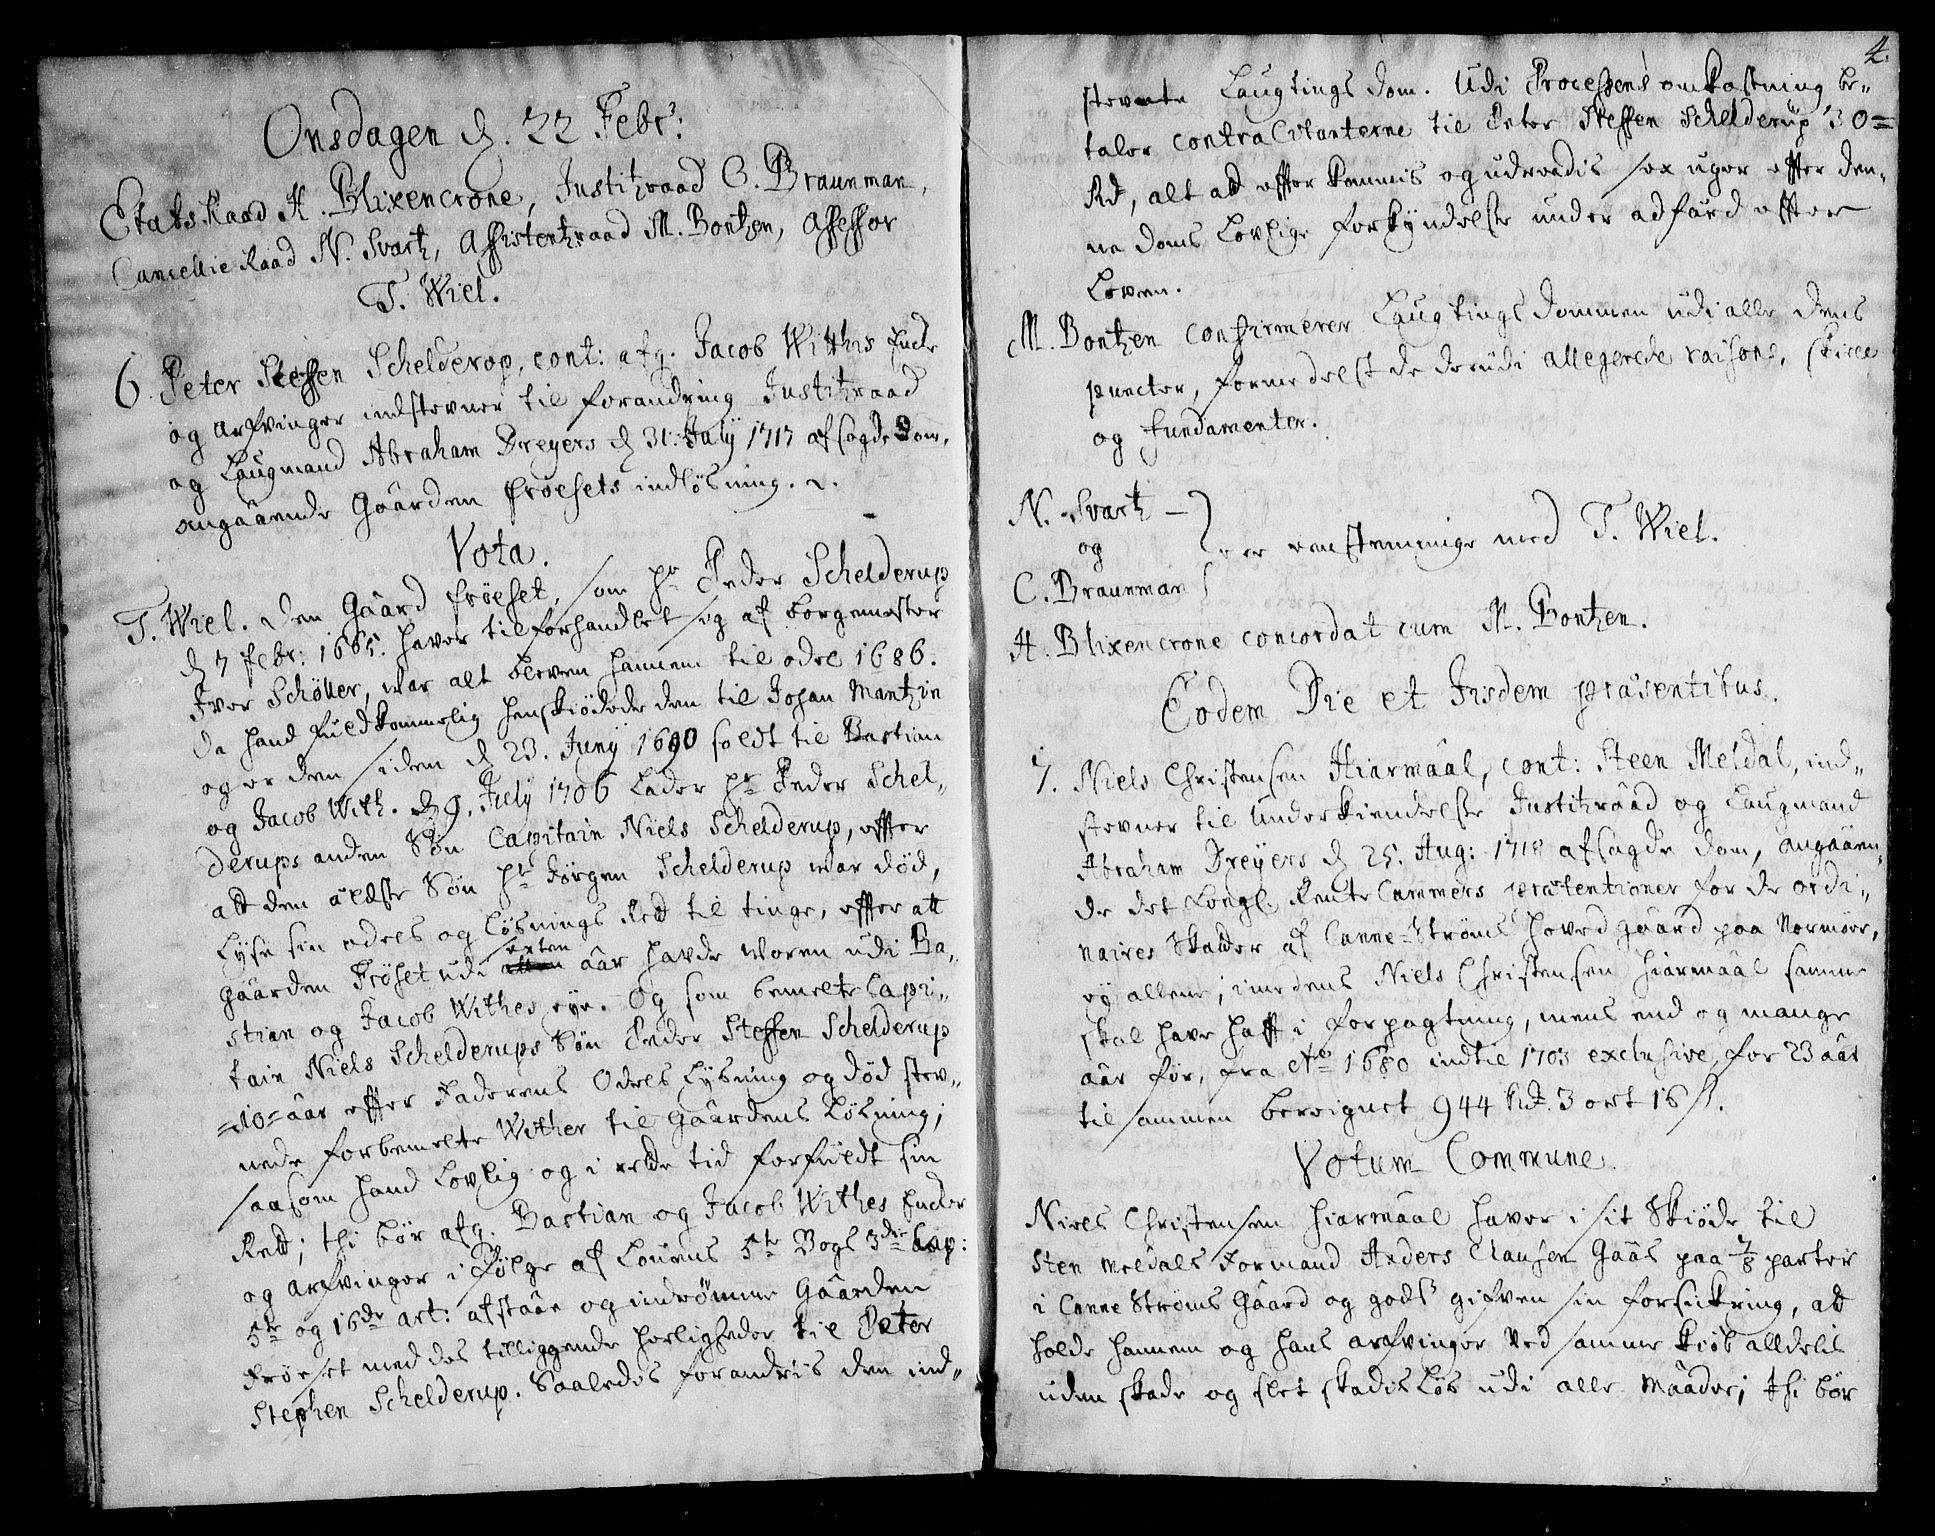 Onsdagen d. 22 Febr:
Etats Raad H. Blixencrone, Justitzraad C. Braunman,
Cancellie Raad N. Svartz, Assistentzraad M. Bontzen, Assessor
T. Wiel.
6. Peter Steffen Schelderop, cont: afg. Jacob Withis Encke
og Arfvinger indstevner til forandring Justitzraad
og Laugmand Abraham Dreyers d 31. Julÿ 1717 afsagde Dom,
angaaende Gaarden Frøesets indløsning.
Vota.
T. Wiel. Den Gaard Frøeset, som Hr Peder Schelderup
d 7 Febr: 1665. haver tilforhandlet sig af Borgemester
Iver Schøller, war alt bleven hannem til odel 1686.
da hand fuldkommelig henskiødede den til Johan Mantzin
og er den siden d 23. Junÿ 1690 soldt til Bastian
og Jacob With. d 9. Julÿ 1706 Lader Hr Peder Schel-
derups anden Søn Capitain Niels Schelderup, effter
att den ældste Søn Hr Jørgen Schelderup war død,
Lyse sin odels og Løsnings Rett til tinge, effter att
sexten
Gaarden Frøset udi aar hafde woren udi Ba-
stian og Jacob Withes eÿe. Og som bemelte Capi-
tain Niels Schelderups Søn Peder Steffen Schelderup
=10= aar effter Faderens Odels Lysning og død stev-
nede forbemelte Wither til Gaardens Løsning;
saasom hand Lovlig og i rette tid forfuldt sin
Rett; thi bør afg. Bastian og Jacob Withes Encker
og Arfvinger i Følge af Lovens 5te Bogs 3die Cap:
5te og 16de art: afstaae og indrømme Gaarden
Frøeset med des tilliggende herligheder til Peter
Stephen Schelderup. Saaledis forandris den ind-
4.
stevnte Laugtings dom. Udi Processens omkostning be-
taler ContraCitanterne til Peter Steffen Schelderup 30=
Rd, alt att efterkommis og udredis sex uger effter den-
ne doms Lovlige forkÿndelse under adfærd effter
Loven.
M. Bontzen Confirmerer Laugtings Dommen udi alle dens
puncter, formedelst de derudi allegerede raisons, skiell
og fundamenter.
N. Svartz —
og er eenstemmige med T. Wiel.
C. Braunman
H. Blixencrone concordat cum M. Bontzen.
Eodem Die et Iisdem præsentibus.
7. Niels Christensen Hiarmaal, cont: Steen Meldal, ind-
stevner til Underkiendelse Justitzraad og Laugmand
Abraham Dreÿers d 25. Aug: 1718 afsagde dom, angaaen-
de det Kongl. Rente Cammers prætentioner for de ordi-
naires Skatter af Canne-Strøms hoved gaard paa Normøer,
eÿ allene, imedens Niels Christensen Hiarmaal samme
skal have hafft i forpagtning, mens end og mange
aar før, fra Ao 1680 indtil 1703 exclusive, for 23 aar
tilsammen beregnet 944 Rd. 3 ort 16 s.
Votum Commune.
Niels Christensen Hiarmaal haver i sit Skiøde til
Sten Meldals Formand Anders Clausen Gaas paa 7/8 parter
i Canne Strøms Gaard og gods gifven sin forsickring, att
holde hannem og hans arfvinger ved samme kiøb alldelis
uden skade og slet skadisløs udi alle maader; thi bør